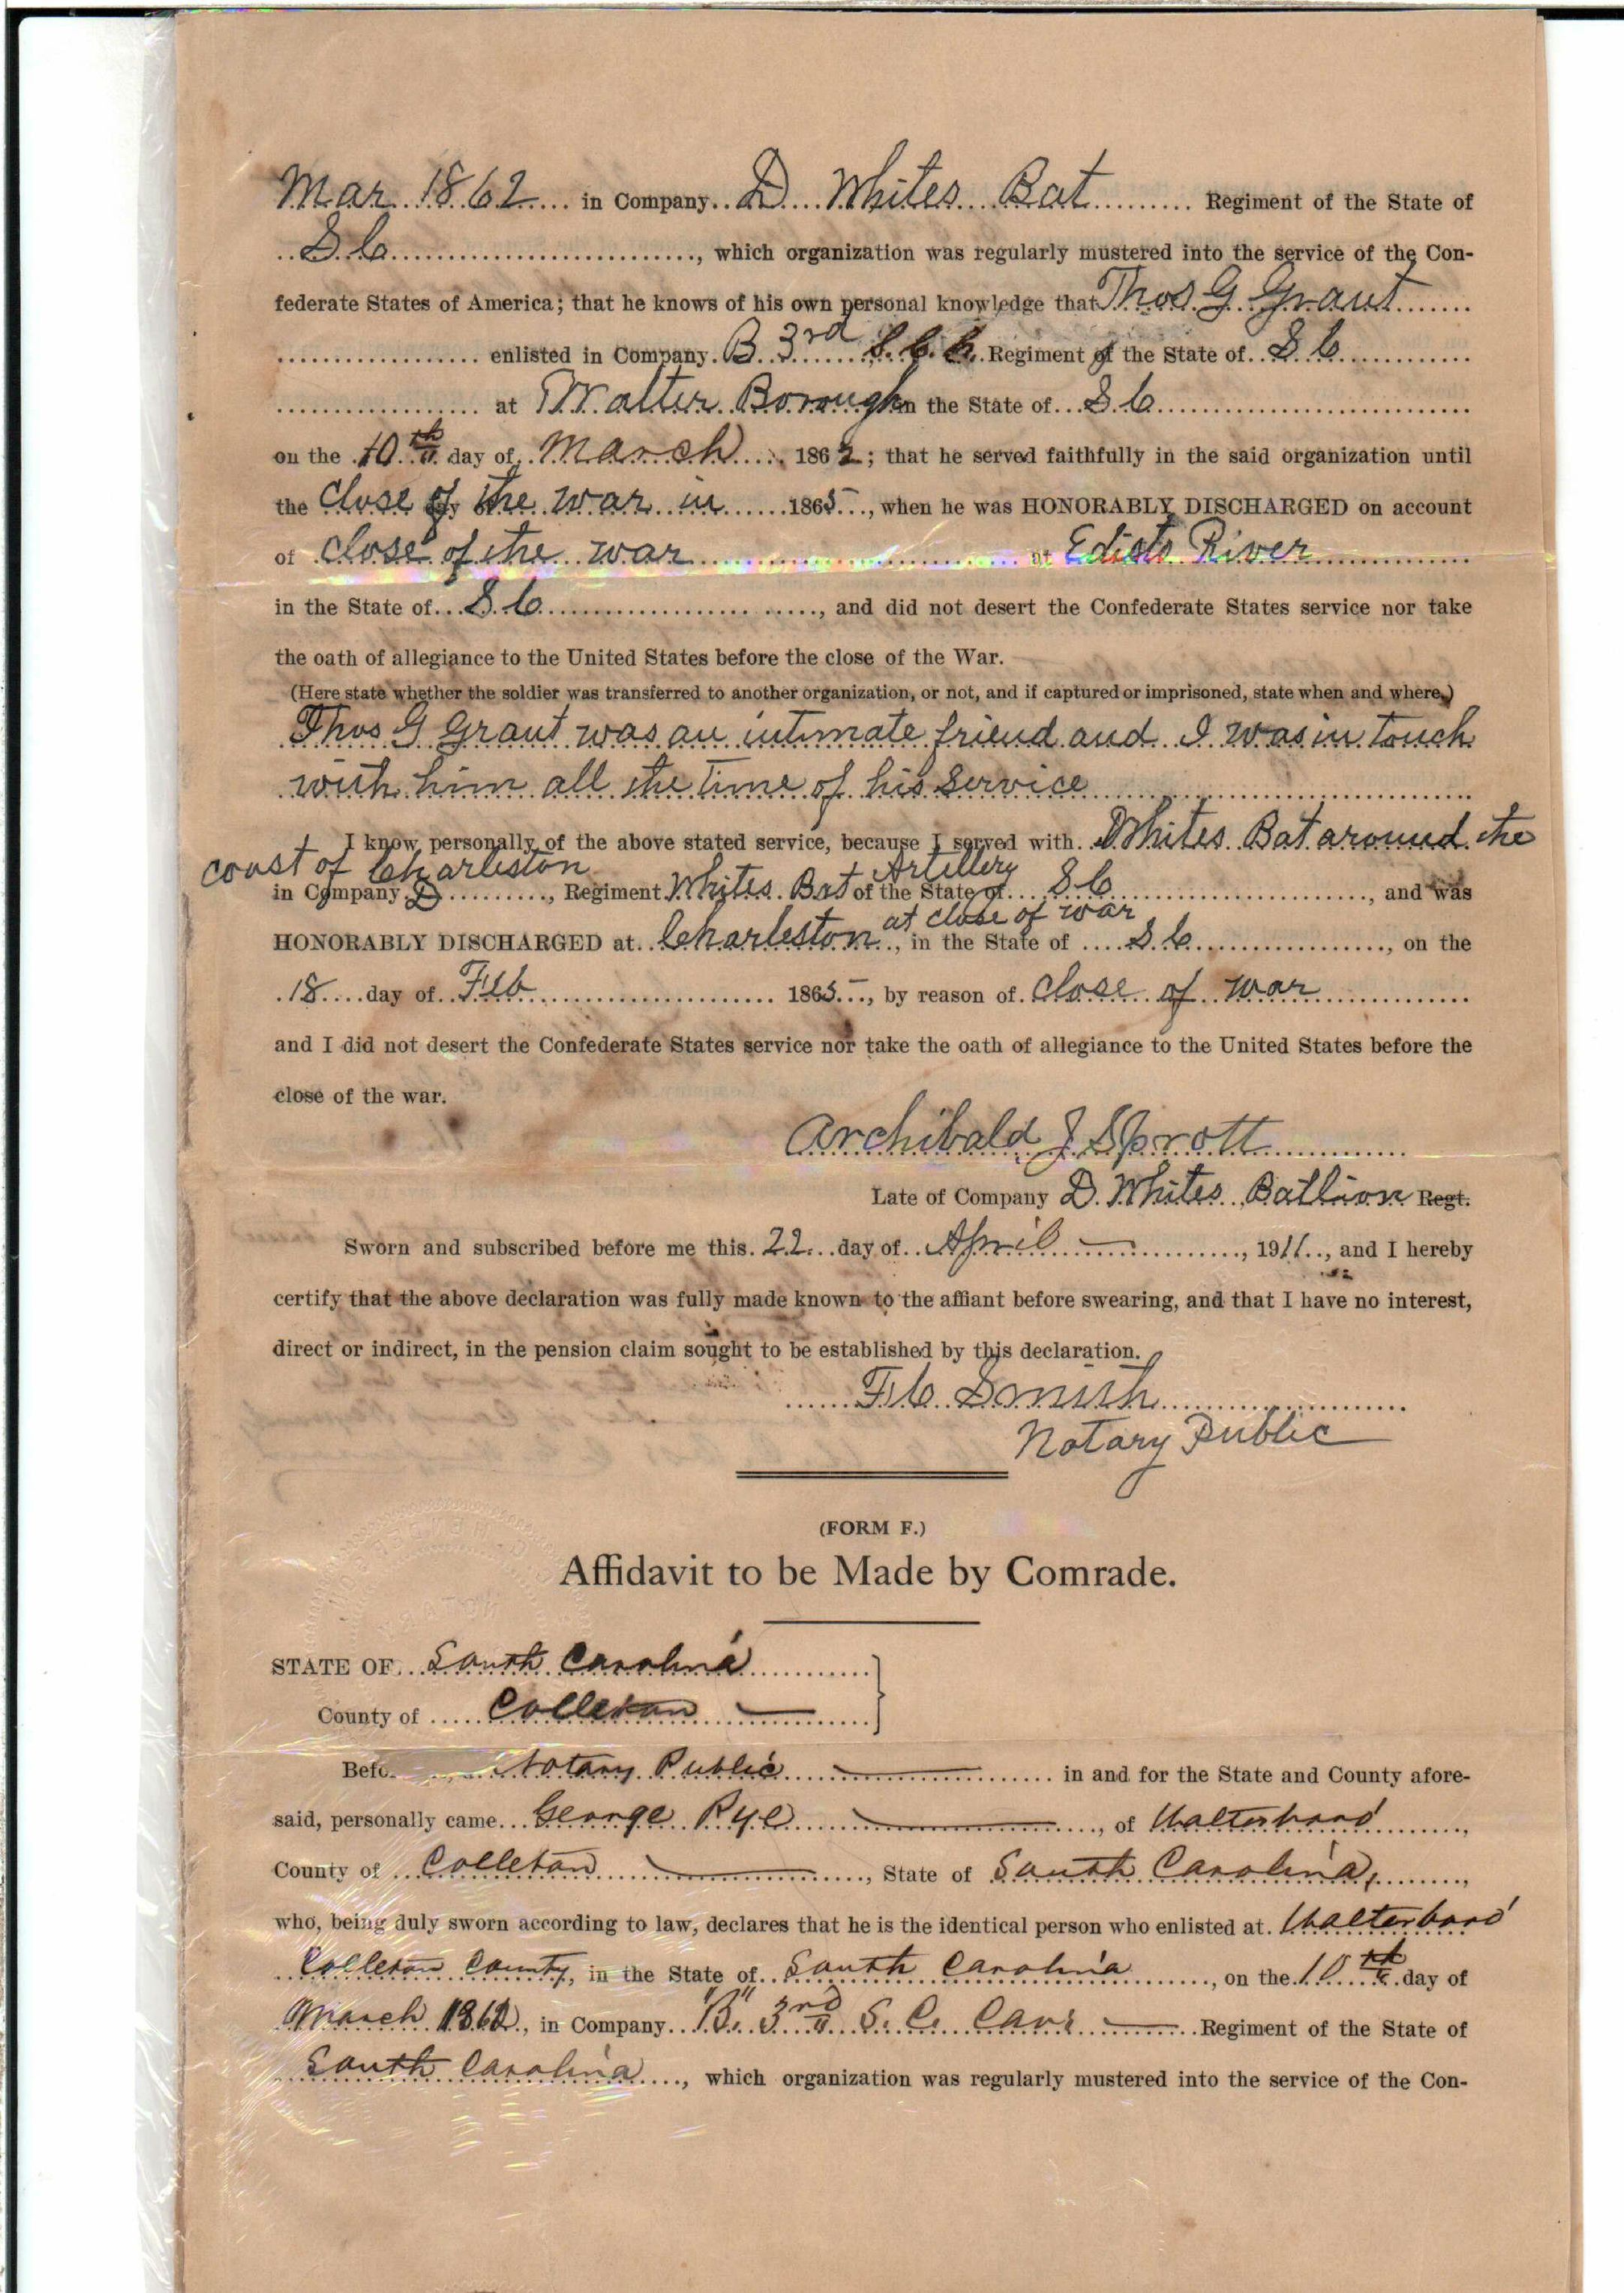 Mar 1862 in Company D Whites Bat Regiment of the State of
S C, which organization was regularly mustered into the service of the Con-
federate States of America; that he knows of his own personal knowledge that Thos G Grant
enlisted in Company B 3rd S. C. C. Regiment of the State of S C
at Walter Borough in the State of S C
on the 10th day of March 1862; that he served faithfully in the said organization until
the close of the war in 1865, when he was HONORABLY DISCHARGED on account
of close of the war at Edisto River
in the State of S C, and did not desert the Confederate States service nor take
the oath of allegiance to the United States before the close of the War.
(Here state whether the soldier was transferred to another organization, or not, and if captured or imprisoned, state when and where.)
Thos G Grant was an intimate friend and I was in touch
with him all the time of his service
I know personally of the above stated service, because I served with Whites Bat around the
coast of Charleston
Artillery
in Company D, Regiment Whites Bat of the State of S C, and was
at close of war
HONORABLY DISCHARGED at Charleston, in the State of S C, on the
18 day of Feb 1865, by reason of close of war
and I did not desert the Confederate States service nor take the oath of allegiance to the United States before the
close of the war.
Archibald J Sprott
Late of Company D. Whites Batlion Regt.
Sworn and subscribed before me this 22 day of April, 1911, and I hereby
certify that the above declaration was fully made known to the affiant before swearing, and that I have no interest,
direct or indirect, in the pension claim sought to be established by this declaration.
F C Smith
Notary Public
(FORM F.)
Affidavit to be Made by Comrade.
STATE OF South Carolina
County of Colleton
Notary Public in and for the State and County afore-
said, personally came George Rye, of Walterboro
County of Colleton, State of South Carolina,
who, being duly sworn according to law, declares that he is the identical person who enlisted at Walterboro
Colleton County, in the State of South Carolina, on the 10th day of
March 1862, in Company "B" 3rd S. C. Cav. Regiment of the State of
South Carolina, which organization was regularly mustered into the service of the Con-